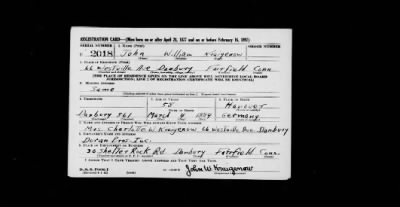 REGISTRATION CARD—(Men born on or after April 28, 1877 and on or before February 16, 1897)
SERIAL NUMBER 1. NAME (Print) ORDER NUMBER
U 2018 John William Kruegenow
2. PLACE OF RESIDENCE (Print)
66 Westville Ave Danbury Fairfield Conn
[THE PLACE OF RESIDENCE GIVEN ON THE LINE ABOVE WILL DETERMINE LOCAL BOARD
JURISDICTION; LINE 2 OF REGISTRATION CERTIFICATE WILL BE IDENTICAL]
3. MAILING ADDRESS
Same
4. TELEPHONE 5. AGE IN YEARS 6. PLACE OF BIRTH
58 Hanover
Danbury 561 March 4 1884 Germany
7. NAME AND ADDRESS OF PERSON WHO WILL ALWAYS KNOW YOUR ADDRESS
Mrs. Charlotte W Kruegenow 66 Westville Ave. Danbury
Doran Bros. Inc.
9. PLACE OF EMPLOYMENT OR BUSINESS
Shelter Rock Rd. Danbury Fairfield Conn.
I AFFIRM THAT I HAVE VERIFIED ABOVE ANSWERS AND THAT THEY ARE TRUE.
D.S.S. Form 1
John W Kruegenow